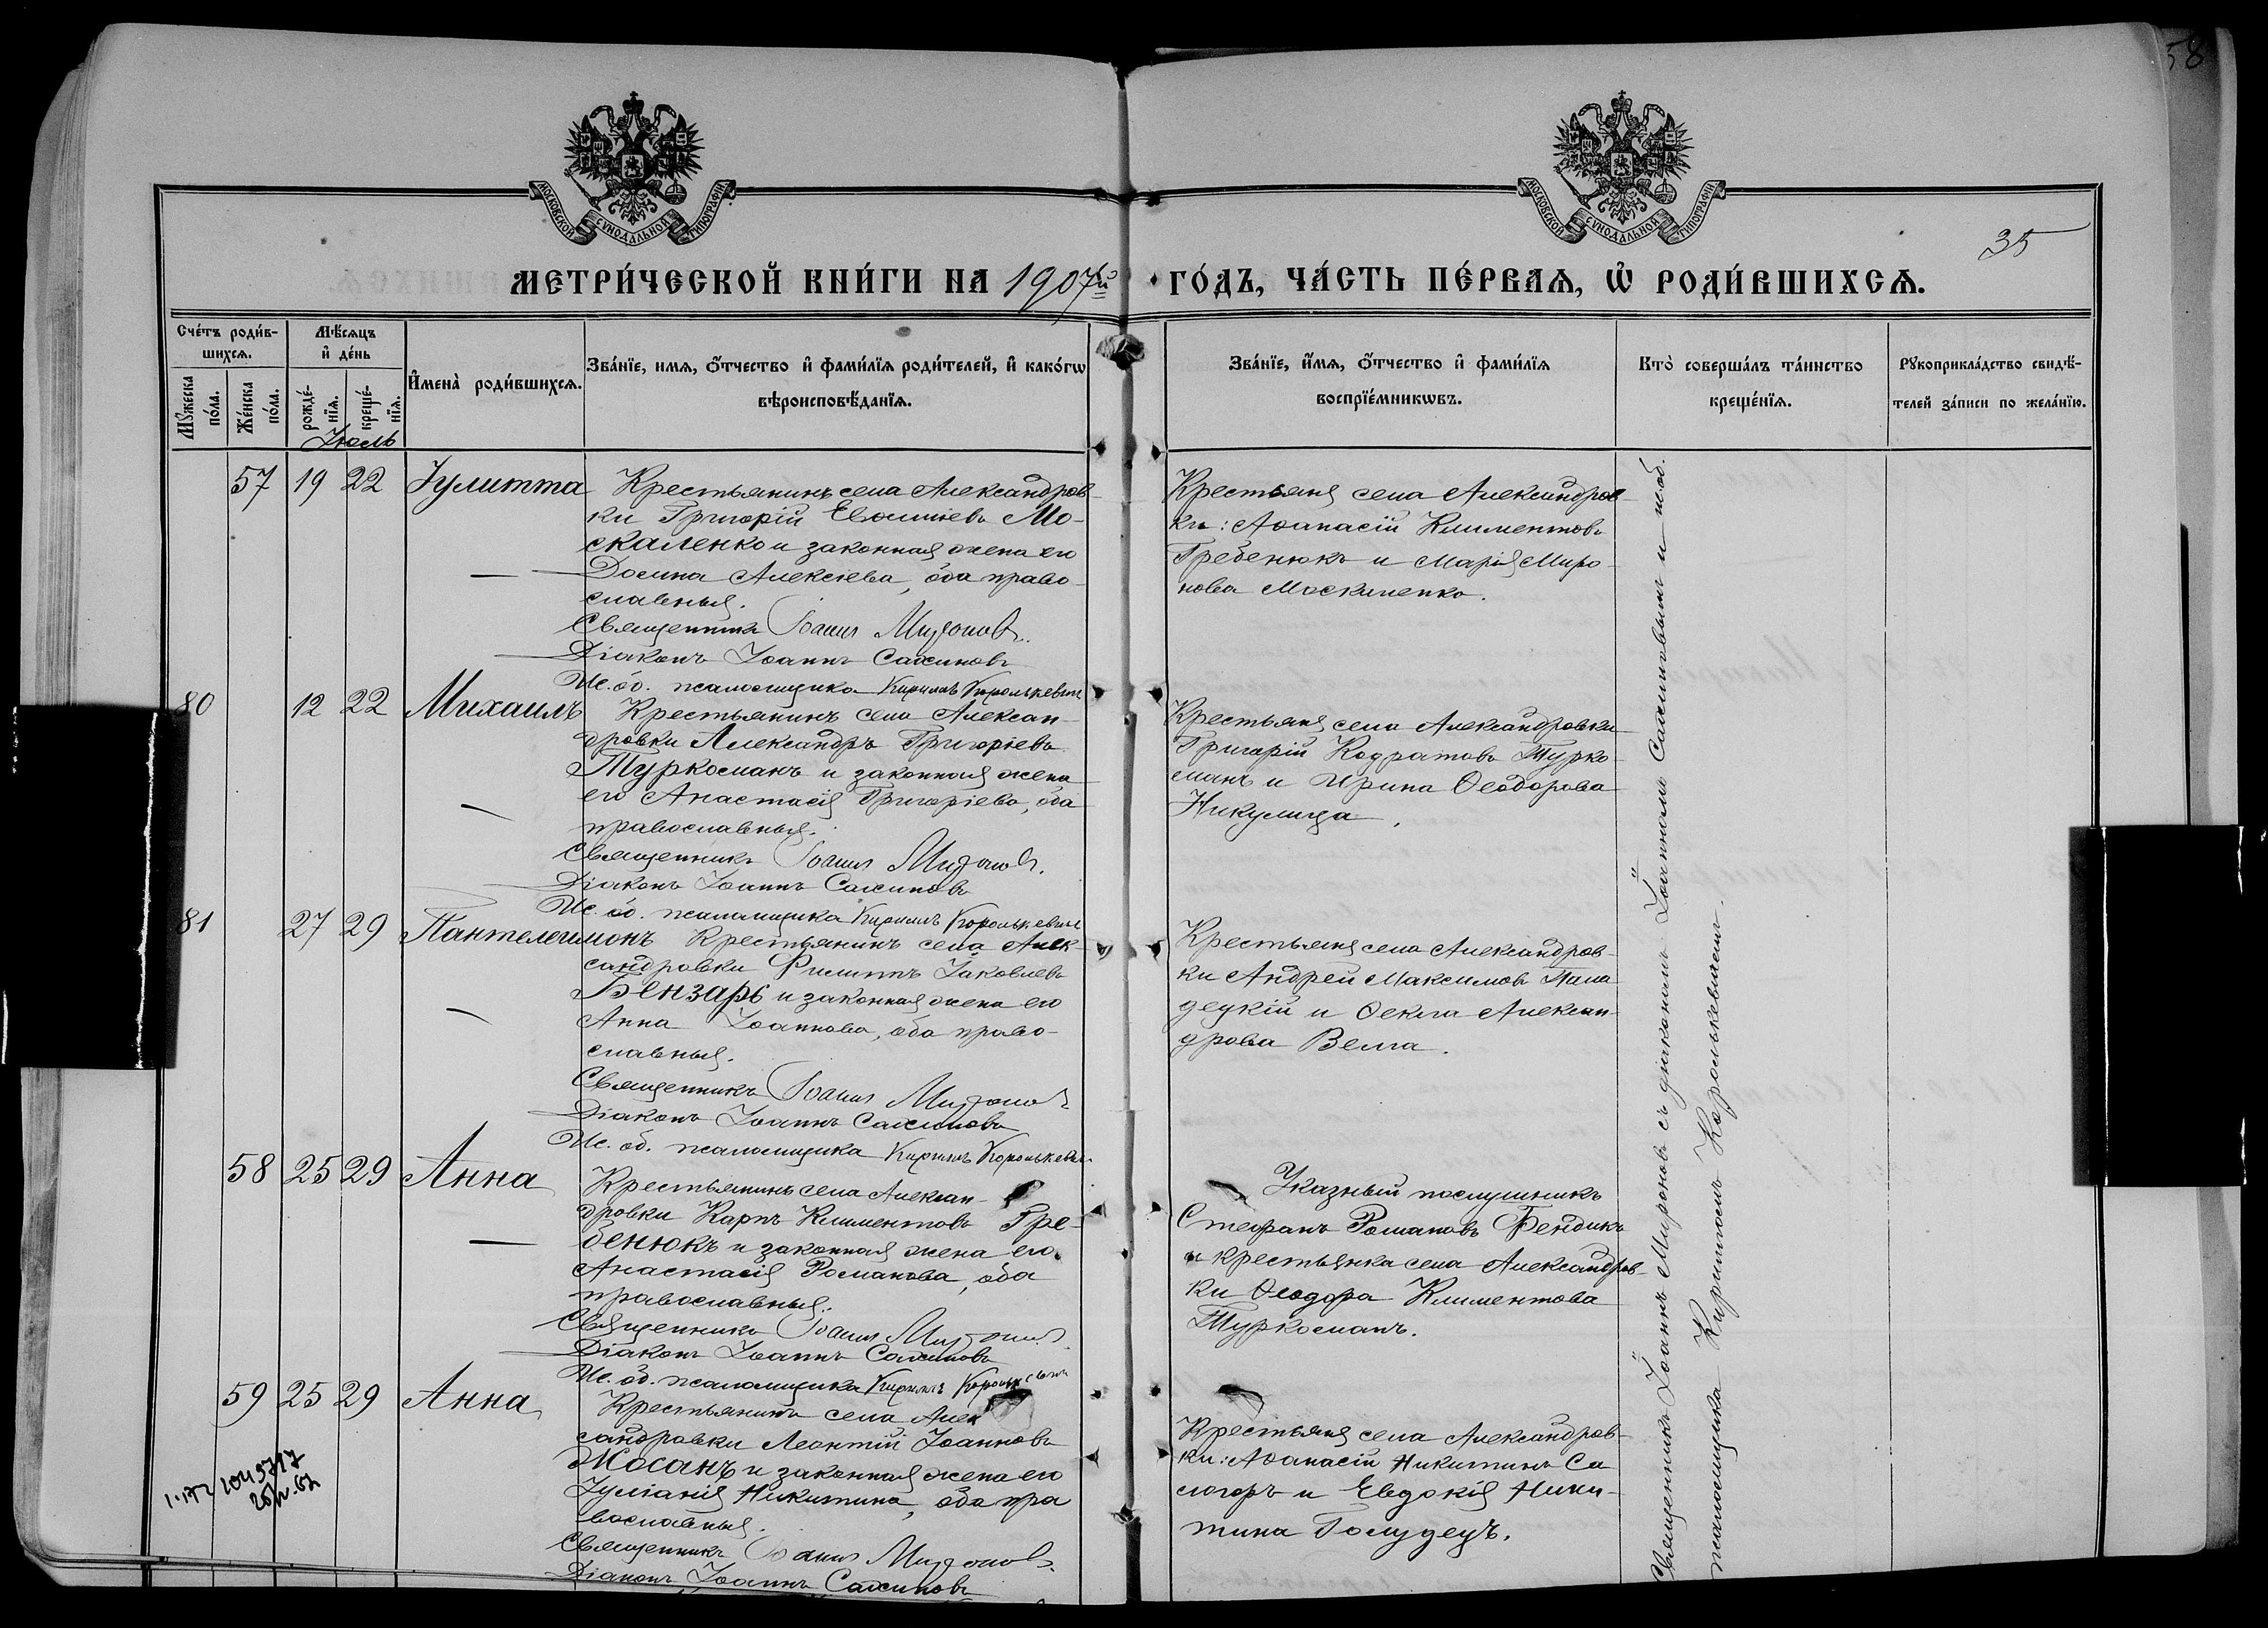 58
МОСКОВСКОЙ СѴНОДАЛЬНОЙ ТИПОГРАФІИ
МОСКОВСКОЙ СѴНОДАЛЬНОЙ ТИПОГРАФІИ
35
МЕТРИ́ЧЕСКОЙ КНИ́ГИ НА 1907й ГО́ДЪ, ЧА́СТЬ ПЕ́РВАѦ, Ѡ҆ РОДИ́ВШИХСѦ.
Сче́тъ роди́в-
шихсѧ.
Мꙋ́жеска по́ла.
Же́нска по́ла.
Мѣ́сѧцъ
и҆ де́нь
рожде́-
нїѧ.
креще́-
нїѧ.
Июль
И҆мена̀ роди́вшихсѧ.
Зва́нїе, имѧ, ѻ҆́тчество и҆ фами́лїѧ роди́телей, и҆ како́гѡ
вѣроисповѣ́данїѧ.
Зва́нїе, и҆́мѧ, ѻ҆́тчество и҆ фами́лїѧ
воспрїе́мникѡвъ.
Кто̀ соверша́лъ та́инство
креще́нїѧ.
Рꙋкоприкла́дство свидѣ́-
телей за́писи по жела́нїю.
57 19 22 Іулитта
Крестьянинъ села Александров-
ки Григорій Евфиміевъ Мо-
скаленко и законная жена его
Домна Алексіева, оба право-
славныя.
Священникъ Іоаннъ Мироновъ.
Діаконъ Іоаннъ Сахиновъ
Ис. об. псаломщика Кириллъ Королькевич
Крестьяне села Александров-
ки: Аѳанасій Климентовъ
Гребенюкъ и Марія Миро-
нова Москаленко.
80 12 22 Михаилъ
Крестьянинъ села Алексан-
дровки Александръ Григоріевъ
Туркоманъ и законная жена
его Анастасія Григоріева, оба
православныя.
Священникъ Іоаннъ Мироновъ.
Діаконъ Іоаннъ Сахиновъ
Ис. об. псаломщика Кириллъ Королькевич
Крестьяне села Александровки
Григорій Кодратовъ Турко-
манъ и Ирина Ѳеодорова
Никулица.
81 27 29 Пантелеимонъ
Крестьянинъ села Алек-
сандровки Филиппъ Іаковлевъ
Бензарь и законная жена его
Анна Іоаннова, оба право-
славныя.
Священникъ Іоаннъ Мироновъ
Діаконъ Іоаннъ Сахиновъ
Ис. об. псаломщика Кириллъ Королькевич
Крестьяне села Александров-
ки Андрей Максимовъ Пала-
децкій и Ѳекла Алексан-
дрова Велта.
58 25 29 Анна
Крестьянинъ села Алексан-
дровки Карпъ Климентовъ Гре-
бенюкъ и законная жена его
Анастасія Романова, оба
православныя.
Священникъ Іоаннъ Мироновъ
Діаконъ Іоаннъ Сахиновъ
Ис. об. псаломщика Кириллъ Королькевич
Указный послушникъ
Стефанъ Романовъ Бендикъ
и крестьянка села Александров-
ки Ѳеодора Климентова
Туркоманъ.
59 25 29 Анна
Крестьянинъ села Алек
сандровки Леонтій Іоанновъ
Жосанъ и законная жена его
Іуліанія Никитина, оба пра
вославныя.
Священникъ Іоаннъ Мироновъ
Діаконъ Іоаннъ Сахиновъ
Крестьяне села Александров-
ки: Аѳанасій Никитинъ Са
могоръ и Евдокія Ники-
тина Голудецъ.
Священникъ Іоаннъ Мироновъ съ діакономъ Іоанномъ Сахиновымъ и и. об.
псаломщика Кирилломъ Королькевичемъ.